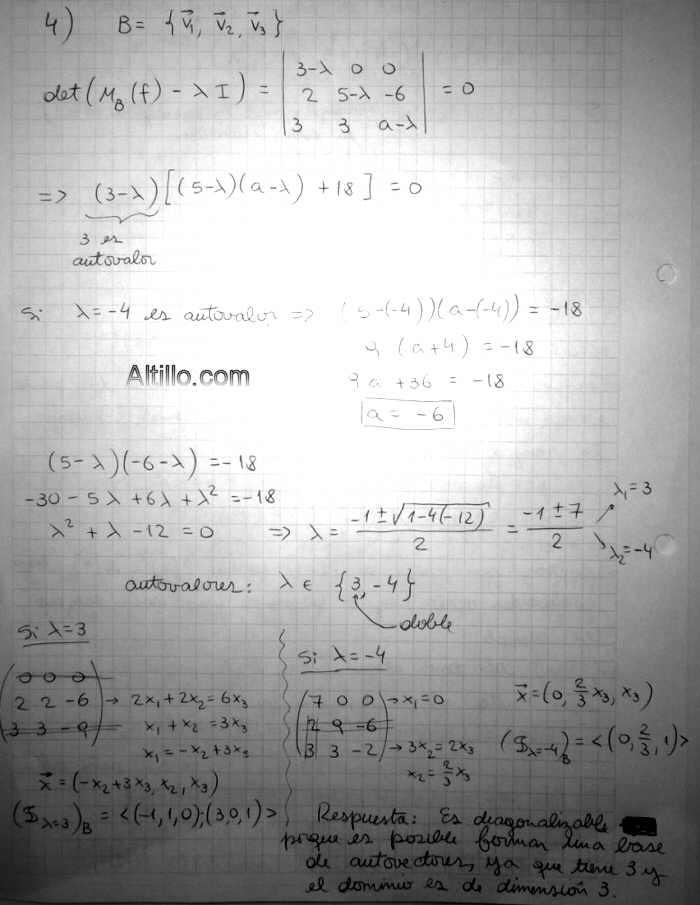 4) B = {v⃗₁, v⃗₂, v⃗₃}
det(M_B(f) - λI) = | 3-λ 0 0 | = 0
| 2 5-λ -6 |
| 3 3 a-λ |
=> (3-λ)[(5-λ)(a-λ) + 18] = 0
3 es
autovalor
Si λ = -4 es autovalor => (5-(-4))(a-(-4)) = -18
9 (a+4) = -18
9a + 36 = -18
a = -6
Altillo.com
(5-λ)(-6-λ) = -18
-30 - 5λ + 6λ + λ² = -18
λ² + λ - 12 = 0 => λ = (-1 ± √(1-4(-12)))/2 = (-1 ± 7)/2
λ₁ = 3
λ₂ = -4
autovalores: λ ∈ {3, -4}
doble
Si λ = 3
( 0 0 0 )
( 2 2 -6 ) → 2x₁ + 2x₂ = 6x₃
( 3 3 -9 ) x₁ + x₂ = 3x₃
x₁ = -x₂ + 3x₃
x⃗ = (-x₂ + 3x₃, x₂, x₃)
(S_λ=3)_B = <(-1,1,0);(3,0,1)>
Si λ = -4
( 7 0 0 ) → x₁ = 0
( 2 9 -6 )
( 3 3 -2 ) → 3x₂ = 2x₃
x₂ = 2/3 x₃
x⃗ = (0, 2/3 x₃, x₃)
(S_λ=-4)_B = <(0, 2/3, 1)>
Respuesta: Es diagonalizable
porque es posible formar una base
de autovectores, ya que tiene 3 y
el dominio es de dimensión 3.